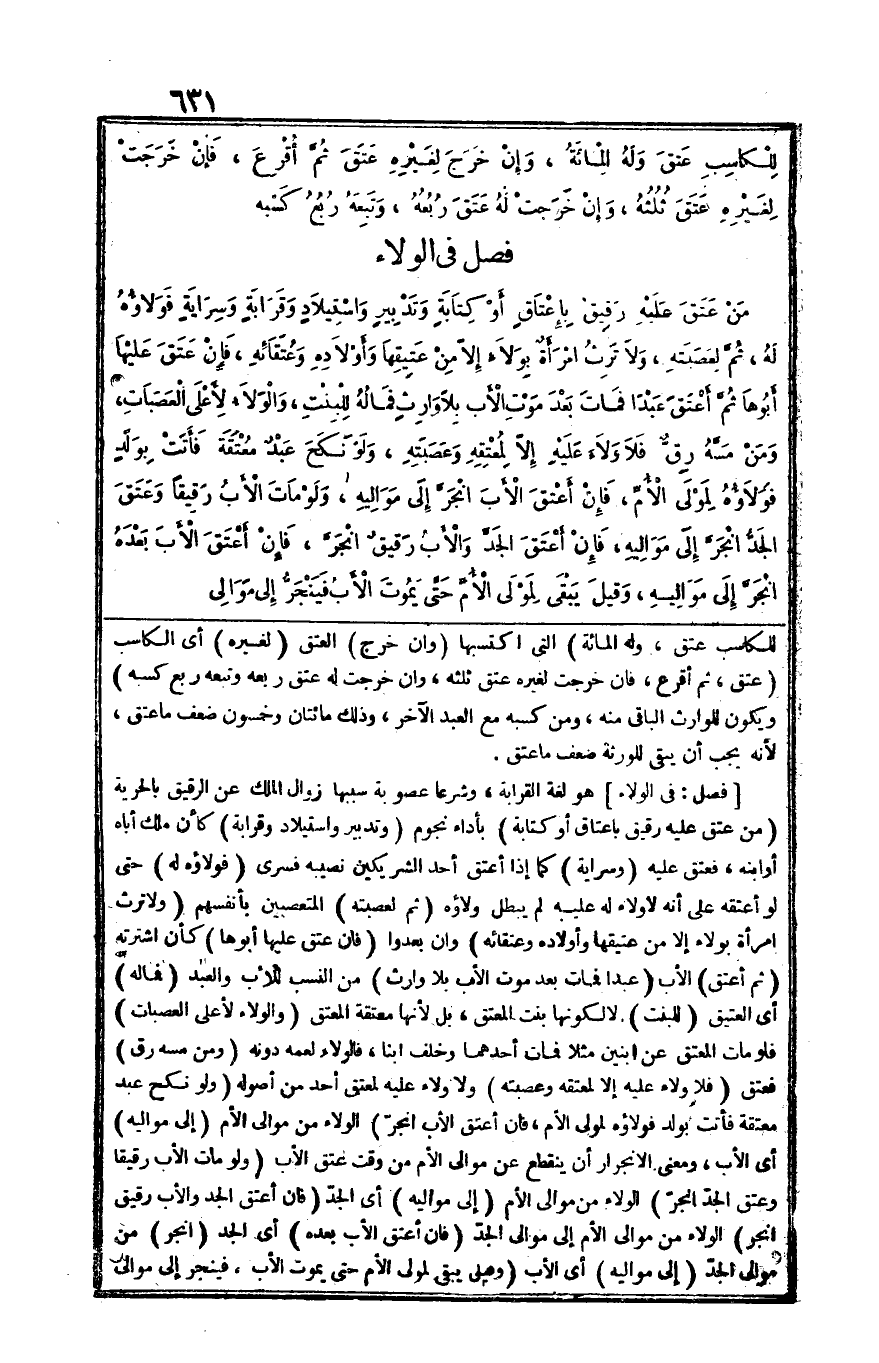 ٦٣١
لِلْكَاسِبِ عَتَقَ وَلَهُ الْمِائَةُ ، وَإِنْ خَرَجَ لِغَيْرِهِ عَتَقَ ثُمَّ أُقْرِعَ ، فَإِنْ خَرَجَتْ
لِغَيْرِهِ عَتَقَ ثُلُثُهُ ، وَإِنْ خَرَجَتْ لَهُ عَتَقَ رُبُعُهُ ، وَتَبِعَهُ رُبُعُ كَسْبِه
فصل فى الولاء
مَنْ عَتَقَ عَلَيْهِ رَقِيقٌ بِإِعْتَاقٍ أَوْ كِتَابَةٍ وَتَدْبِيرٍ وَاسْتِيلَادٍ وَقَرَابَةٍ وَسِرَايَةٍ فَوَلَاؤُهُ
لَهُ ، ثُمَّ لِعَصَبَتِهِ ، وَلَا تَرِثُ امْرَأَةٌ بِوَلَاءٍ إِلَّا مِنْ عَتِيقِهَا وَأَوْلَادِهِ وَعُتَقَائِهِ ، فَإِنْ عَتَقَ عَلَيْهَا
أَبُوهَا ثُمَّ أَعْتَقَ عَبْدًا فَمَاتَ بَعْدَ مَوْتِ الْأَبِ بِلَا وَارِثٍ فَمَالُهُ لِلْبِنْتِ ، وَالْوَلَاءُ لِأَعْلَى الْعَصَبَاتِ،
وَمَنْ مَسَّهُ رِقٌّ فَلَا وَلَاءَ عَلَيْهِ إِلَّا لِمُعْتِقِهِ وَعَصَبَتِهِ ، وَلَوْ نَكَحَ عَبْدٌ مُعْتَقَةً فَأَتَتْ بِوَلَدٍ
فَوَلَاؤُهُ لِمَوْلَى الْأُمِّ ، فَإِنْ أُعْتِقَ الْأَبُ انْجَرَّ إِلَى مَوَالِيهِ ، وَلَوْ مَاتَ الْأَبُ رَقِيقًا وَعَتَقَ
الْجَدُّ انْجَرَّ إِلَى مَوَالِيهِ ، فَإِنْ أُعْتِقَ الْجَدُّ وَالْأَبُ رَقِيقٌ انْجَرَّ ، فَإِنْ أُعْتِقَ الْأَبُ بَعْدَهُ
انْجَرَّ إِلَى مَوَالِيهِ ، وَقِيلَ يَبْقَى لِمَوْلَى الْأُمِّ حَتَّى يَمُوتَ الْأَبُ فَيَنْجَرُّ إِلَى مَوَالِى
للكاسب عتق ، وله المائة ) التى اكتسبها ( وان خرج ) العتق ( لغيره ) أى الكاسب
( عتق ، ثم أقرع ، فان خرجت لغيره عتق ثلثه ، وان خرجت له عتق ربعه وتبعه ربع كسبه )
ويكون للوارث الباقى منه ، ومن كسبه مع العبد الآخر ، وذلك مائتان وخمسون ضعف ماعتق ،
لأنه يجب أن يبقى للورثة ضعف ماعتق .
[ فصل : فى الولاء ] هو لغة القرابة ، وشرعا عصوبة سببها زوال الملك عن الرقيق بالحرية
( من عتق عليه رقيق باعتاق أو كتابة ) بأداء نجوم ( وتدبير واستيلاد وقرابة ) كأن ملك أباه
أو ابنه ، فعتق عليه ( وسراية ) كما إذا أعتق أحد الشريكين نصيبه فسرى ( فولاؤه له ) حتى
لو أعتقه على أنه لاولاء له عليه لم يبطل ولاؤه ( ثم لعصبته ) المتعصبين بأنفسهم ( ولاترث
امرأة بولاء إلا من عتيقها وأولاده وعتقائه ) وان بعدوا ( فان عتق عليها أبوها ) كأن اشترته
( ثم أعتق) الأب ( عبدا فمات بعد موت الأب بلا وارث ) من النسب للأب والعبد ( فماله )
أى العتيق ( للبنت ) لالكونها بنت المعتق ، بل لأنها معتقة المعتق ( والولاء لأعلى العصبات )
فلو مات المعتق عن ابنين مثلا فمات أحدهما وخلف ابنا ، فالولاء لعمه دونه ( ومن مسه رق )
فعتق ( فلا ولاء عليه إلا لمعتقه وعصبته ) ولا ولاء عليه لمعتق أحد من أصوله ( ولو نكح عبد
معتقة فأتت بولد فولاؤه لمولى الأم ، فان أعتق الأب انجرّ ) الولاء من موالى الأم ( إلى مواليه )
أى الأب ، ومعنى الانجرار أن ينقطع عن موالى الأم من وقت عتق الأب ( ولو مات الأب رقيقا
وعتق الجدّ انجرّ ) الولاء من موالى الأم ( إلى مواليه ) أى الجدّ ( فان أعتق الجد والأب رقيق
انجر ) الولاء من موالى الأم إلى موالى الجدّ ( فان أعتق الأب بعده ) أى الجد ( انجر ) من
موالى الجدّ ( إلى مواليه ) أى الأب ( وقيل يبقى لمولى الأم حتى يموت الأب ، فينجر إلى موالى